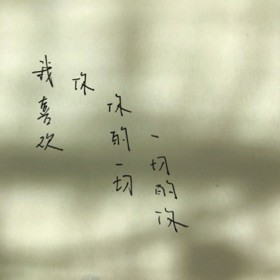 我喜欢
你
你的一切
一切的你